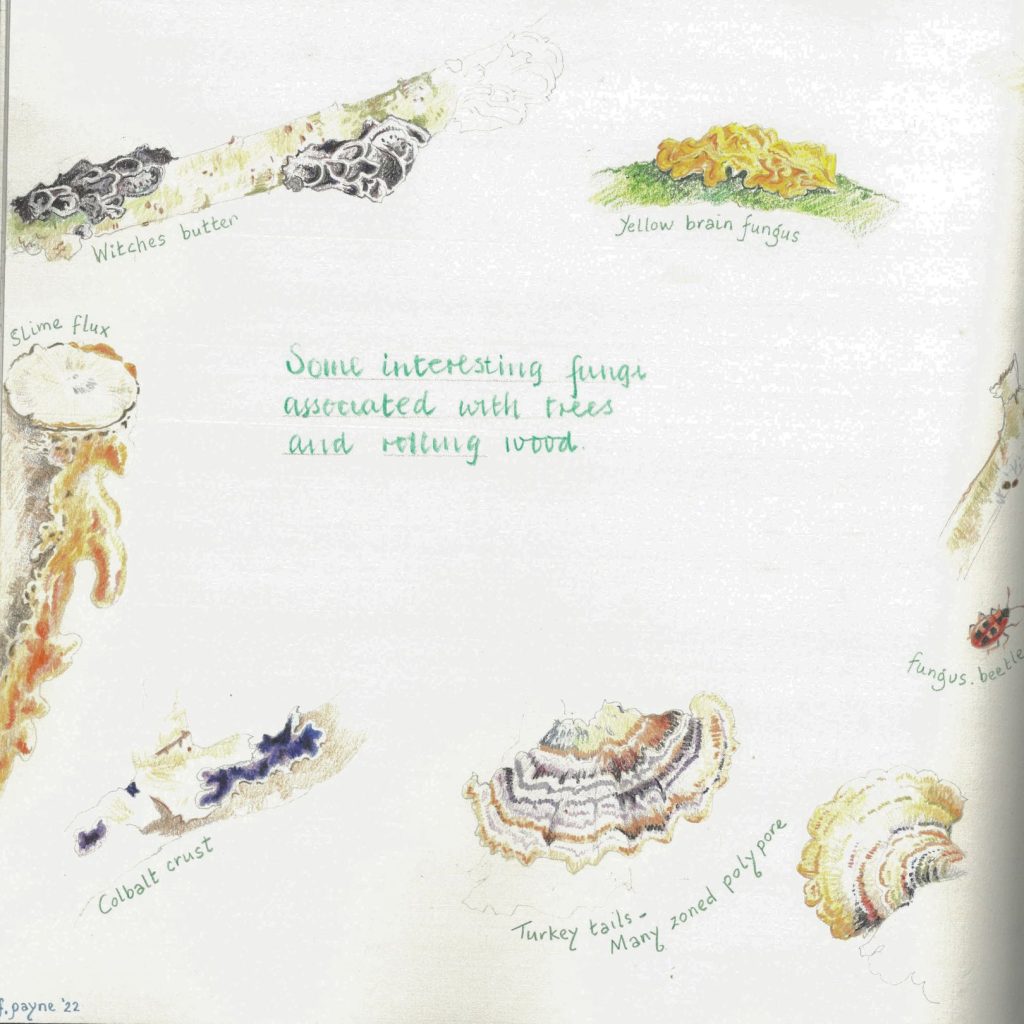 Witches butter
Yellow brain fungus
Slime flux
Some interesting fungi
associated with trees
and rotting wood.
fungus.beetle
Colbalt crust
Turkey tails -
Many zoned polypore
f.payne '22